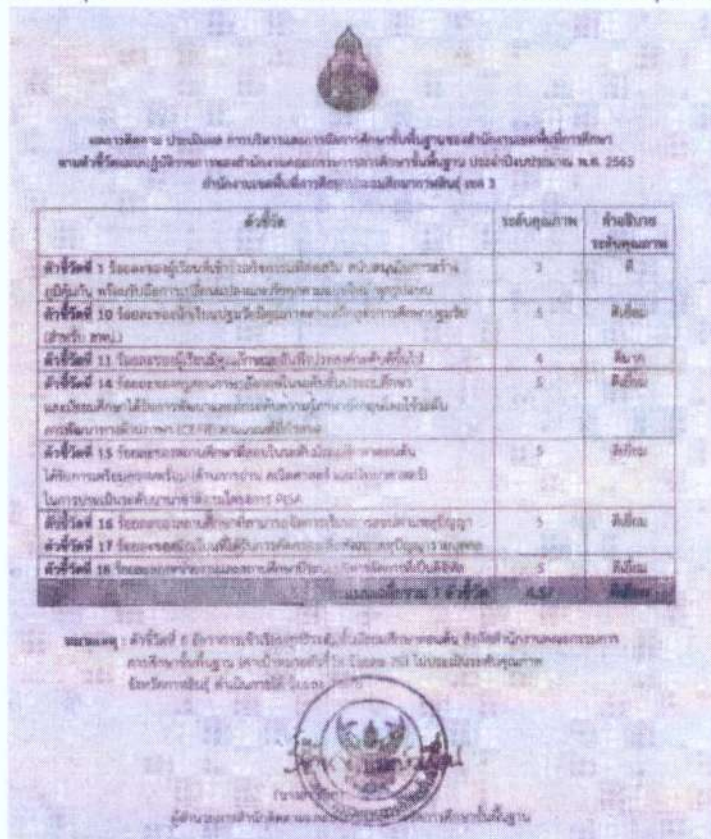 ผลการติดตาม ประเมินผล การบริหารและการจัดการศึกษาขั้นพื้นฐานของสำนักงานเขตพื้นที่การศึกษา
ตามตัวชี้วัดแผนปฏิบัติราชการของสำนักงานคณะกรรมการการศึกษาขั้นพื้นฐาน ประจำปีงบประมาณ พ.ศ. 2565
สำนักงานเขตพื้นที่การศึกษาประถมศึกษากาฬสินธุ์ เขต 3
ตัวชี้วัด ระดับคุณภาพ คำอธิบาย
ระดับคุณภาพ
ตัวชี้วัดที่ 1 ร้อยละของผู้เรียนที่เข้าร่วมกิจกรรมที่ส่งเสริม สนับสนุนในการสร้าง 3 ดี
ภูมิคุ้มกัน พร้อมรับมือการเปลี่ยนแปลงและภัยคุกคามแบบใหม่ ทุกรูปแบบ
ตัวชี้วัดที่ 10 ร้อยละของนักเรียนปฐมวัยมีคุณภาพตามหลักสูตรการศึกษาปฐมวัย 5 ดีเยี่ยม
(สำหรับ สพป.)
ตัวชี้วัดที่ 11 ร้อยละของผู้เรียนมีคุณลักษณะอันพึงประสงค์ระดับดีขึ้นไป 4 ดีมาก
ตัวชี้วัดที่ 14 ร้อยละของครูสอนภาษาอังกฤษในระดับชั้นประถมศึกษา 5 ดีเยี่ยม
และมัธยมศึกษาได้รับการพัฒนาและยกระดับความรู้ภาษาอังกฤษโดยใช้ระดับ
การพัฒนาทางด้านภาษา (CEFR) ตามเกณฑ์ที่กำหนด
ตัวชี้วัดที่ 15 ร้อยละของสถานศึกษาที่สอนในระดับมัธยมศึกษาตอนต้น 5 ดีเยี่ยม
ได้รับการเตรียมความพร้อมด้านการอ่าน คณิตศาสตร์ และวิทยาศาสตร์
ในการประเมินระดับนานาชาติตามโครงการ PISA
ตัวชี้วัดที่ 16 ร้อยละของสถานศึกษาที่สามารถจัดการเรียนการสอนตามพหุปัญญา 5 ดีเยี่ยม
ตัวชี้วัดที่ 17 ร้อยละของนักเรียนที่ได้รับการคัดกรองเพื่อพัฒนาพหุปัญญารายบุคคล
ตัวชี้วัดที่ 18 ร้อยละของหน่วยงานและสถานศึกษามีระบบบริหารจัดการที่เป็นดิจิทัล 5 ดีเยี่ยม
คะแนนเฉลี่ยรวม 7 ตัวชี้วัด 4.57 ดีเยี่ยม
หมายเหตุ : ตัวชี้วัดที่ 6 อัตราการเข้าเรียนสุทธิระดับชั้นมัธยมศึกษาตอนต้น สังกัดสำนักงานคณะกรรมการ
การศึกษาขั้นพื้นฐาน ไม่ประเมินระดับคุณภาพ
จังหวัดกาฬสินธุ์ ดำเนินการได้ ร้อยละ